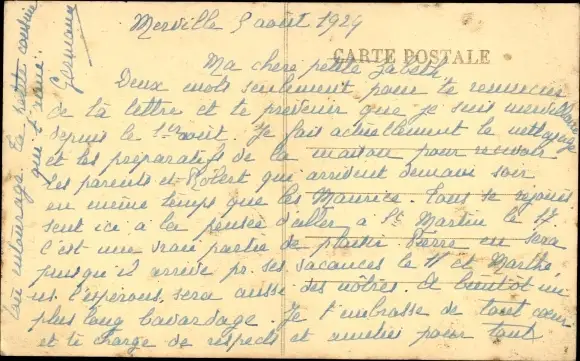 Merville 5 août 1924
CARTE POSTALE
Ma chère petite Zabeth,
Deux mots seulement pour te remercier
de ta lettre et te prévenir que je suis mervillaise
depuis le 1er août. Je fais actuellement le nettoyage
et les préparatifs de la maison pour recevoir
les parents et Robert qui arrivent demain soir
en même temps que les Maurice. Tous se réjouis
sent ici à la pensée d'aller à St Martin le 17.
C'est une vraie partie de plaisir. Pierre en sera
puisqu'il arrive pr. ses vacances le 11 et Marthe,
ns. l'espérons, sera aussi des nôtres. A bientôt un
plus long bavardage. Je t'embrasse de tout cœur
et te charge de respects et amitiés pour tout
ton entourage. Ta petite cousine
qui t'aime.
Germaine